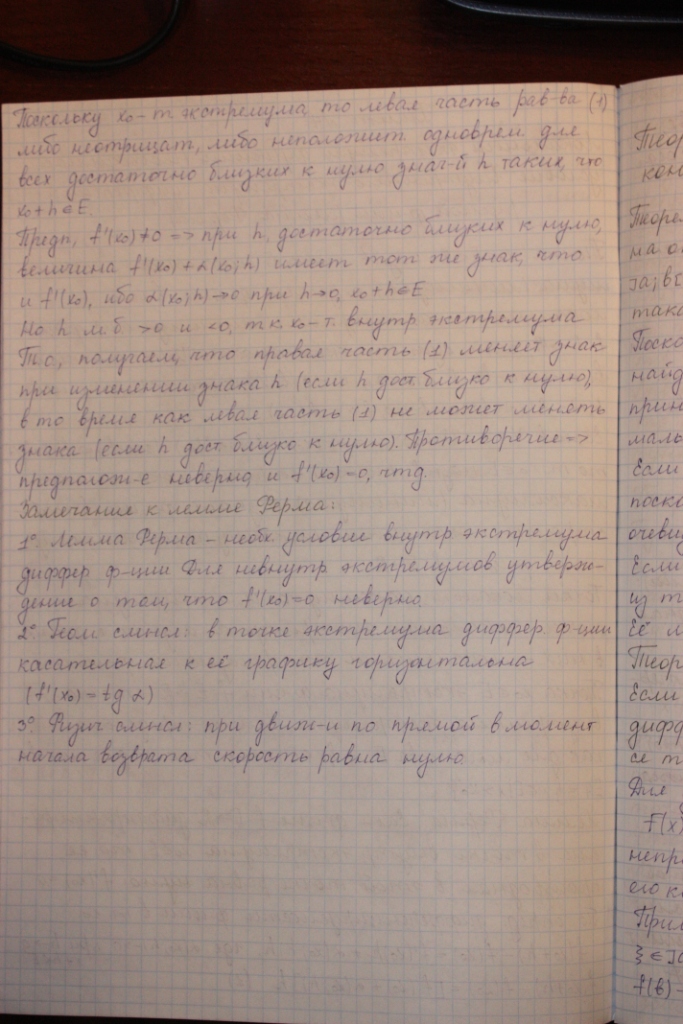 Поскольку x₀ – т. экстремума, то левая часть рав-ва (1)
либо неотрицат., либо неположит. одноврем. для
всех достаточно близких к нулю знач-й h таких, что
x₀+h∈E.
Предп, f'(x₀)≠0 => при h, достаточно близких к нулю,
величина f'(x₀)+α(x₀;h) имеет тот же знак, что
и f'(x₀), ибо α(x₀;h)→0 при h→0, x₀+h∈E
Но h м.б. >0 и <0, т.к. x₀-т. внутр экстремума
Т.о, получаем, что правая часть (1) меняет знак
при изменении знака h (если h дост. близко к нулю),
в то время как левая часть (1) не может менять
знака (если h дост. близко к нулю). Противоречие =>
предполож-е неверно, и f'(x₀)=0, чтд.
Замечание к лемме Ферма:
1°. Лемма Ферма – необх. условие внутр экстремума
диффер ф-ции Для невнутр экстремумов утверж-
дение о том, что f'(x₀)=0 неверно.
2°. Геом смысл: в точке экстремума диффер. ф-ции
касательная к её графику горизонтальна
(f'(x₀)=tg α)
3°. Физич смысл: при движ-и по прямой в момент
начала возврата скорость равна нулю
Теор
кон
Теорем
на о
такa
Поско
найд
прин
мал
Если
поско
очеви
Если
из т
Её м
Теор
Если
дифф
се т
Для
f(x)
непр
его к
Прим
ξ∈]a
f(b)-